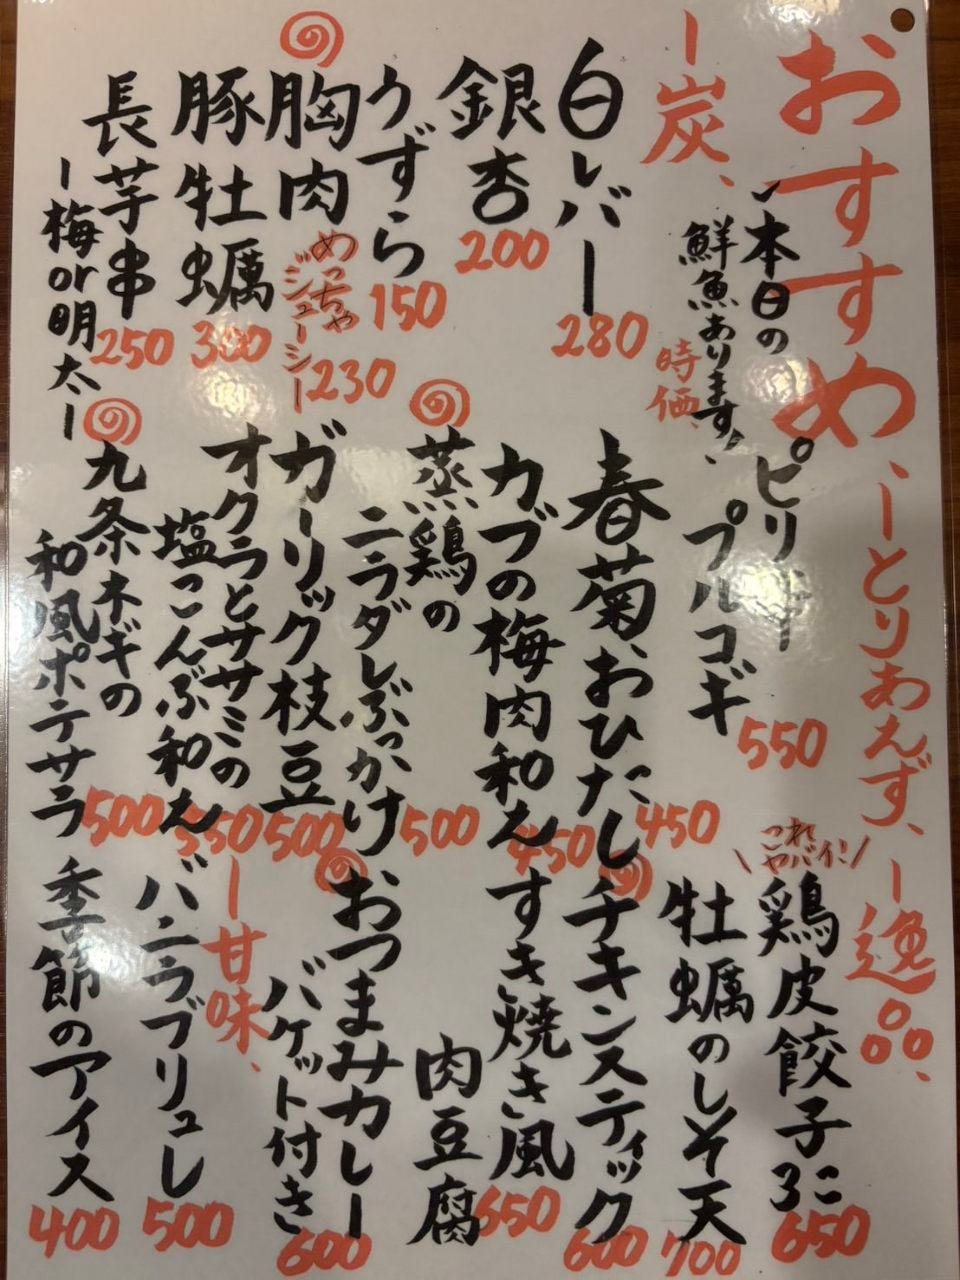 おすすめ
本日の
鮮魚あります。
時価
炭、
白レバー
280
銀杏
200
うずら
150
胸肉
めっちゃ
ジューシー
230
豚牡蠣
300
長芋串
ー梅or明太ー
250
ーとりあえず、
ピリ辛
プルコギ
550
春菊おひたし
450
カブの梅肉和え
450
蒸し鶏の
ニラダレぶっかけ
500
ガーリック枝豆
500
オクラとササミの
塩こんぶ和え
550
九条ネギの
和風ポテサラ
500
ー逸品、
これ
ヤバイ!
鶏皮餃子3こ
650
牡蠣のしそ天
700
チキンスティック
600
すき焼き風
肉豆腐
650
おつまみカレー
バケット付き
600
ー甘味、
バニラブリュレ
500
季節のアイス
400